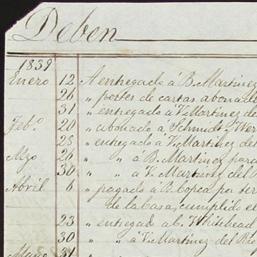 Deben
1839
Enero 12 A entregado á B. Martinez
26 " portes de cartas abonado
31 " entregado á V. Martinez de
Feb.º 20 " abonado á Schmidt y Wer
25 " entregado á V. Martinez del
Mzo 26 " " á B. Martinez para
30 " " á V. Martinez del
Abril 6 " pagado á B. por ter
de la casa, cumplido el
23 " entregado á Whitehead
30 " " á V. Martinez del Rio
31